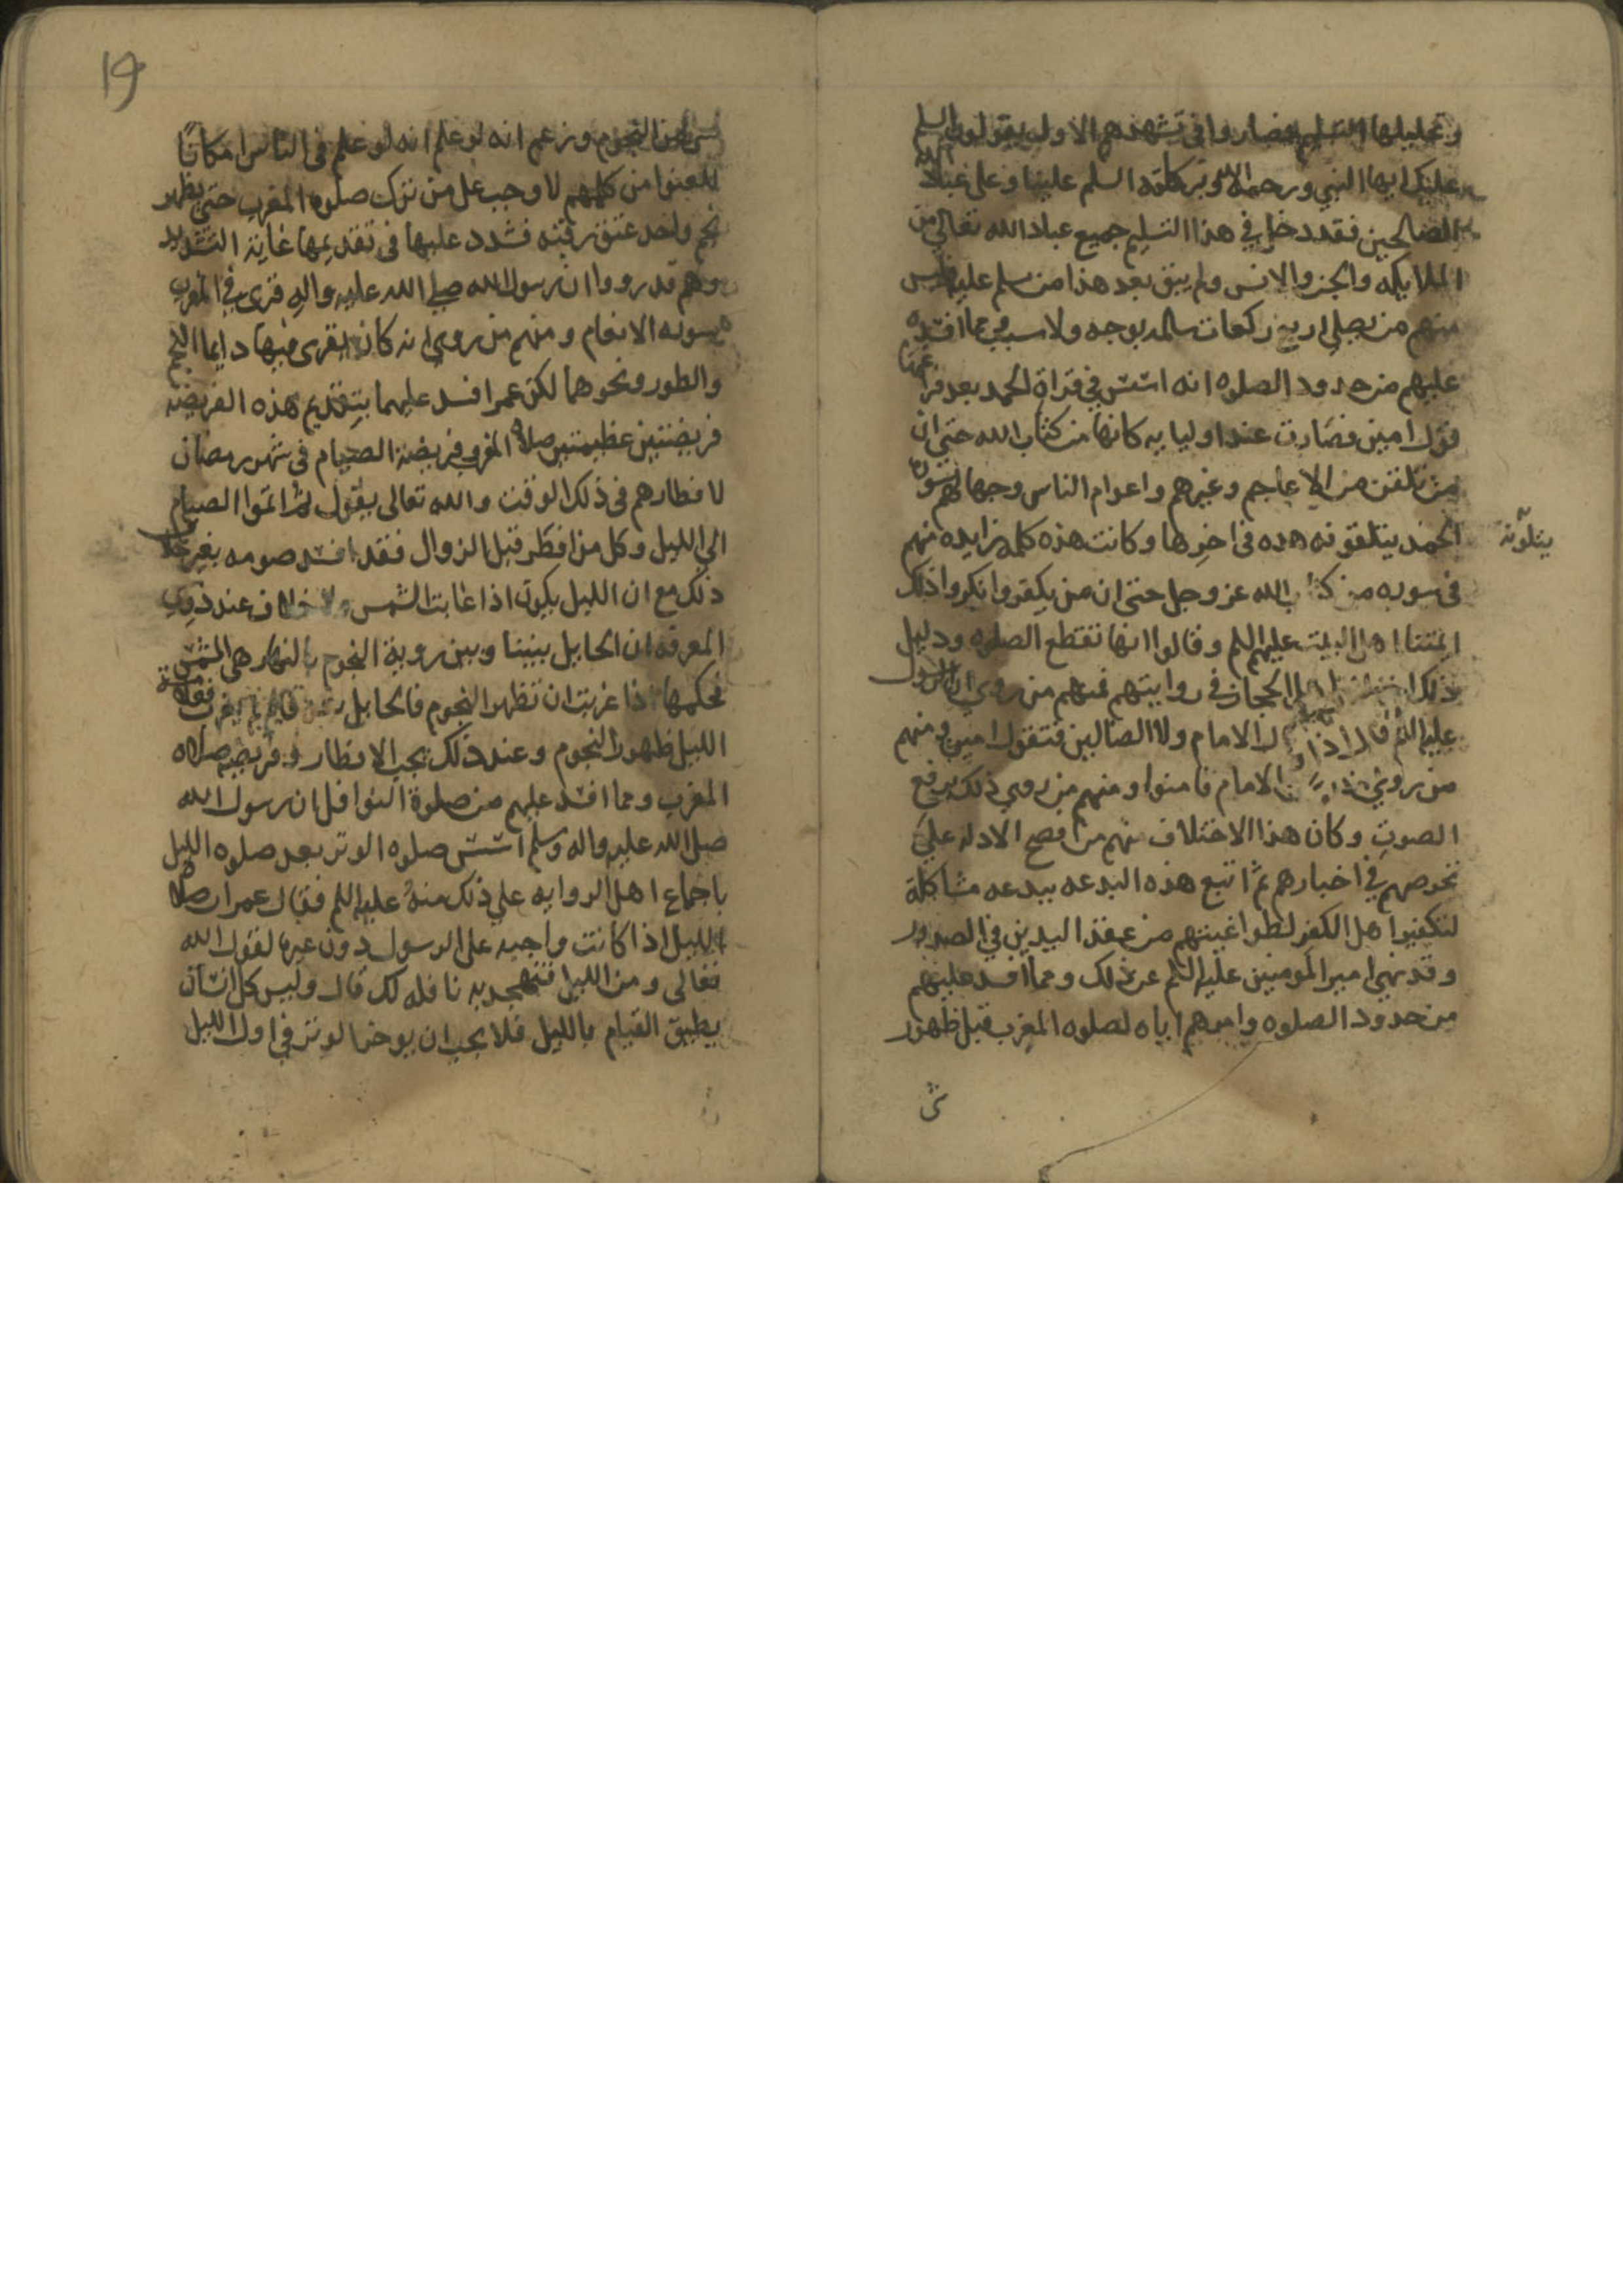 وتحليلها التسليم فصاروا في تشهدهم الاول يقولون السلم
عليك ايها النبي ورحمة الله وبركاته السلم علينا وعلى عباد الله
الصالحين فقد دخل في هذا التسليم جميع عباد الله تعالى من
الملايكه والجن والانس ولم يبق بعد هذا من يسلم عليه فليس
منهم من يصلي اربع ركعات سالمه بوجه ولا سبب ومما افسده
عليهم من حدود الصلوه انه استسن في قراة الحمد بعد فراغها
قول امين فصارت عند اوليايه كانها من كتاب الله حتى ان
من تلقن من الاعاجم وغيرهم واعوام الناس وجهالهم سورة
الحمد يتلقونه هذه في اخرها وكانت هذه كلمه زايده منهم
يتلونه
في سوره من كتاب الله عز وجل حتى ان من يكفروا نكروا ذلك
ايمتنا اهل البيت عليهم السلم وقالوا انها تقطع الصلوه ودليل
ذلك اهل الحجاز في روايتهم فمنهم من روى ان الرسول
عليه السلم قال اذا قال الامام ولا الضالين فتقول امين ومنهم
من روى الامام فامنوا ومنهم من روى ذلك برفع
الصوت وكان هذا الاختلاف منهم من افصح الادله على
تخرصهم في اخبارهم ثم اتبع هذه البدعه ببدعه مشاكلة
لتكفير اهل الكفر لطواغيتهم من عقد اليدين في الصدور
وقد نهى امير المومنين عليه السلم عن ذلك ومما افسد عليهم
من حدود الصلوه وامرهم اياه لصلوه المغرب قبل ظهور
شي
19
شي من النجوم وزعم انه لو علم انه لو علم في الناس امكانا
للعنوا من كلهم لاوجب على من ترك صلوه المغرب حتى يظهر
نجم واحد عتق رقبه فشدد عليها في تقديمها غاية التشديد
وهم قد رووا ان رسول الله صلى الله عليه واله قرى في المغرب
سوره الانعام ومنهم من روى انه كان يقرى فيها دايما النجم
والطور ونحوهما لكن عمر افسد عليهما بتقديم هذه الفريضه
فريضتين عظيمتين صلاة المغرب فريضة الصيام في شهر رمضان
لافطارهم في ذلك الوقت والله تعالى يقول ثم اتموا الصيام
الى الليل وكل من افطر قبل الزوال فقد افسد صومه بغير خلاف
ذلك مع ان الليل يكون اذا غابت الشمس ولا خلاف عند ذوي
المعرفه ان الحايل بيننا وبين روية النجوم بالنهار هي الشمس
فحكمها اذا غربت ان تظهر النجوم فالحايل
الليل ظهور النجوم وعند ذلك يجب الافطار وفريضه صلاه
المغرب ومما افسد عليهم من صلوة النوافل ان رسول الله
صلى الله عليه واله وسلم استسن صلوه الوتر بعد صلوه الليل
باجماع اهل الروايه على ذلك منه عليه السلم فقال عمر ان صلاه
الليل اذا كانت واجبه على الرسول دون غيره لقول الله
تعالى ومن الليل فتهجد به نافله لك قال وليس كل انسان
يطيق القيام بالليل فلا يجب ان يوخر الوتر في اول الليل